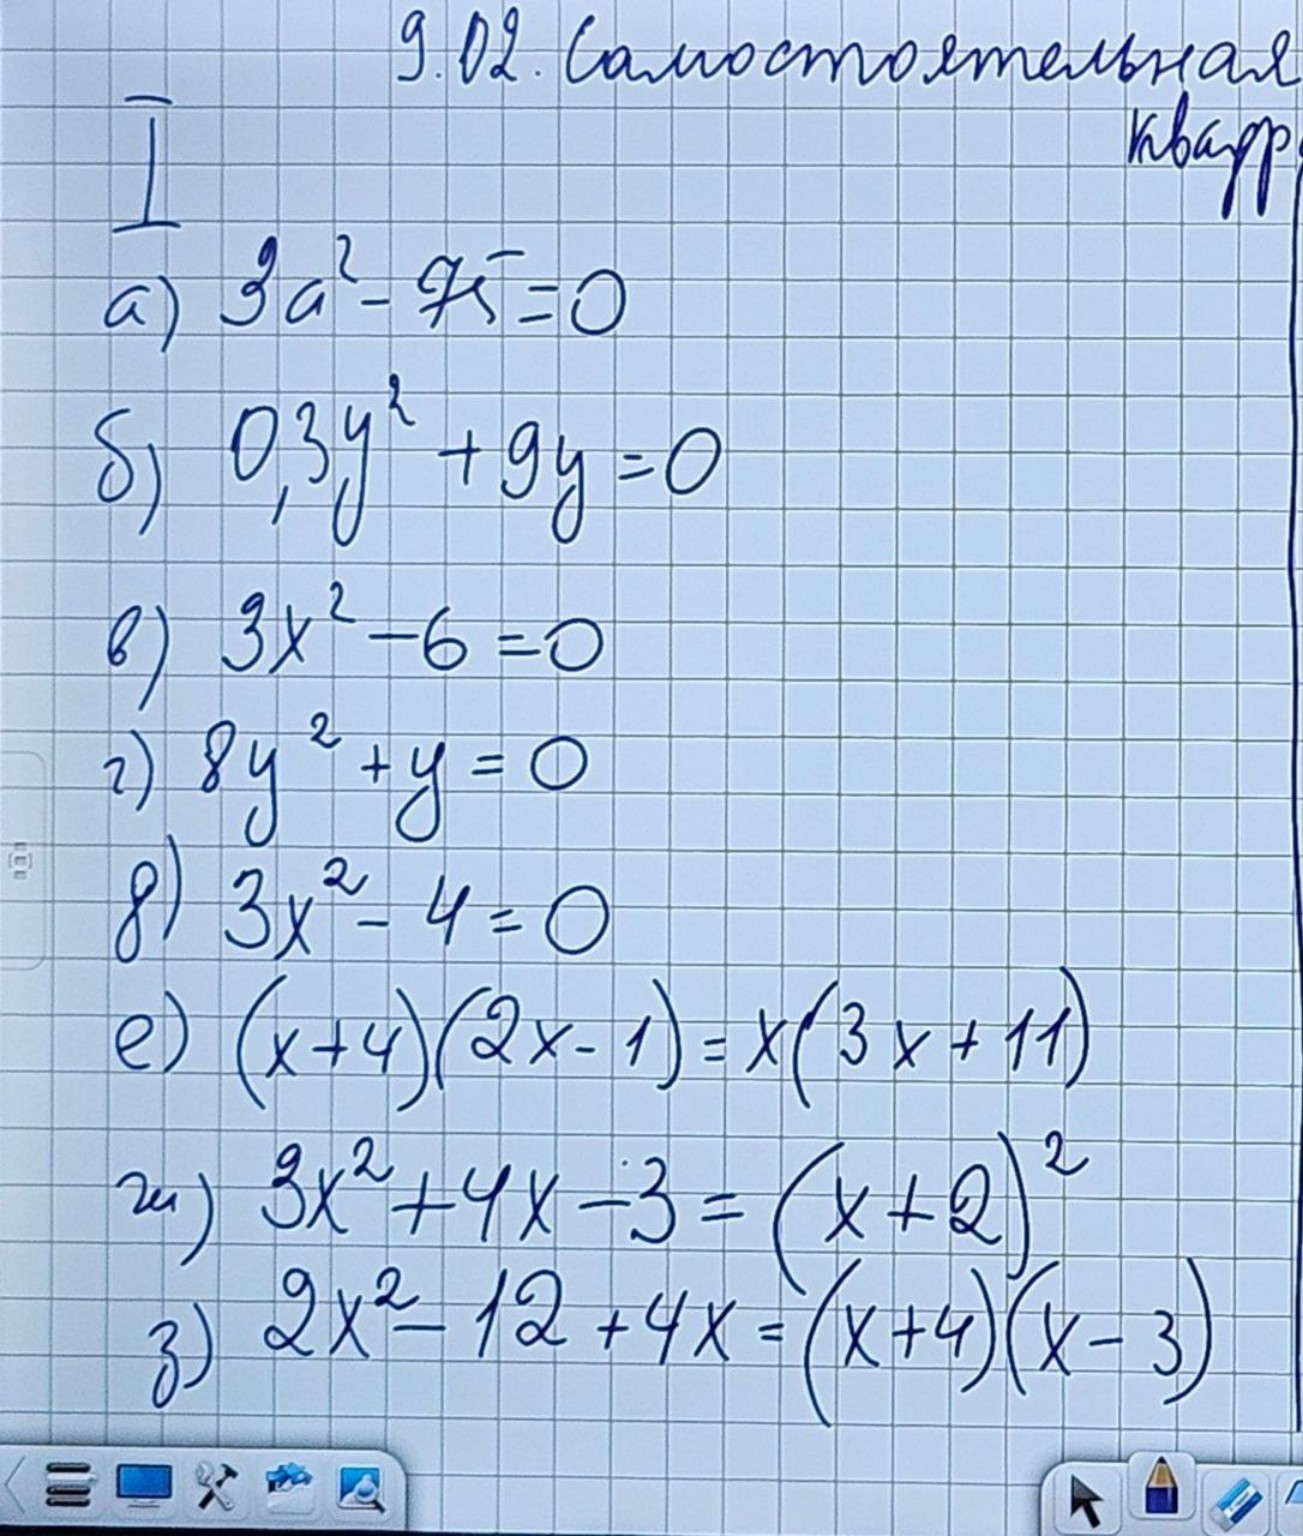 9.02. Самостоятельная
квадр
I
а) 3a² - 75 = 0
б) 0,3y² + 9y = 0
в) 3x² - 6 = 0
г) 8y² + y = 0
д) 3x² - 4 = 0
е) (x+4)(2x-1) = x(3x+11)
ж) 3x² + 4x - 3 = (x+2)²
з) 2x² - 12 + 4x = (x+4)(x-3)